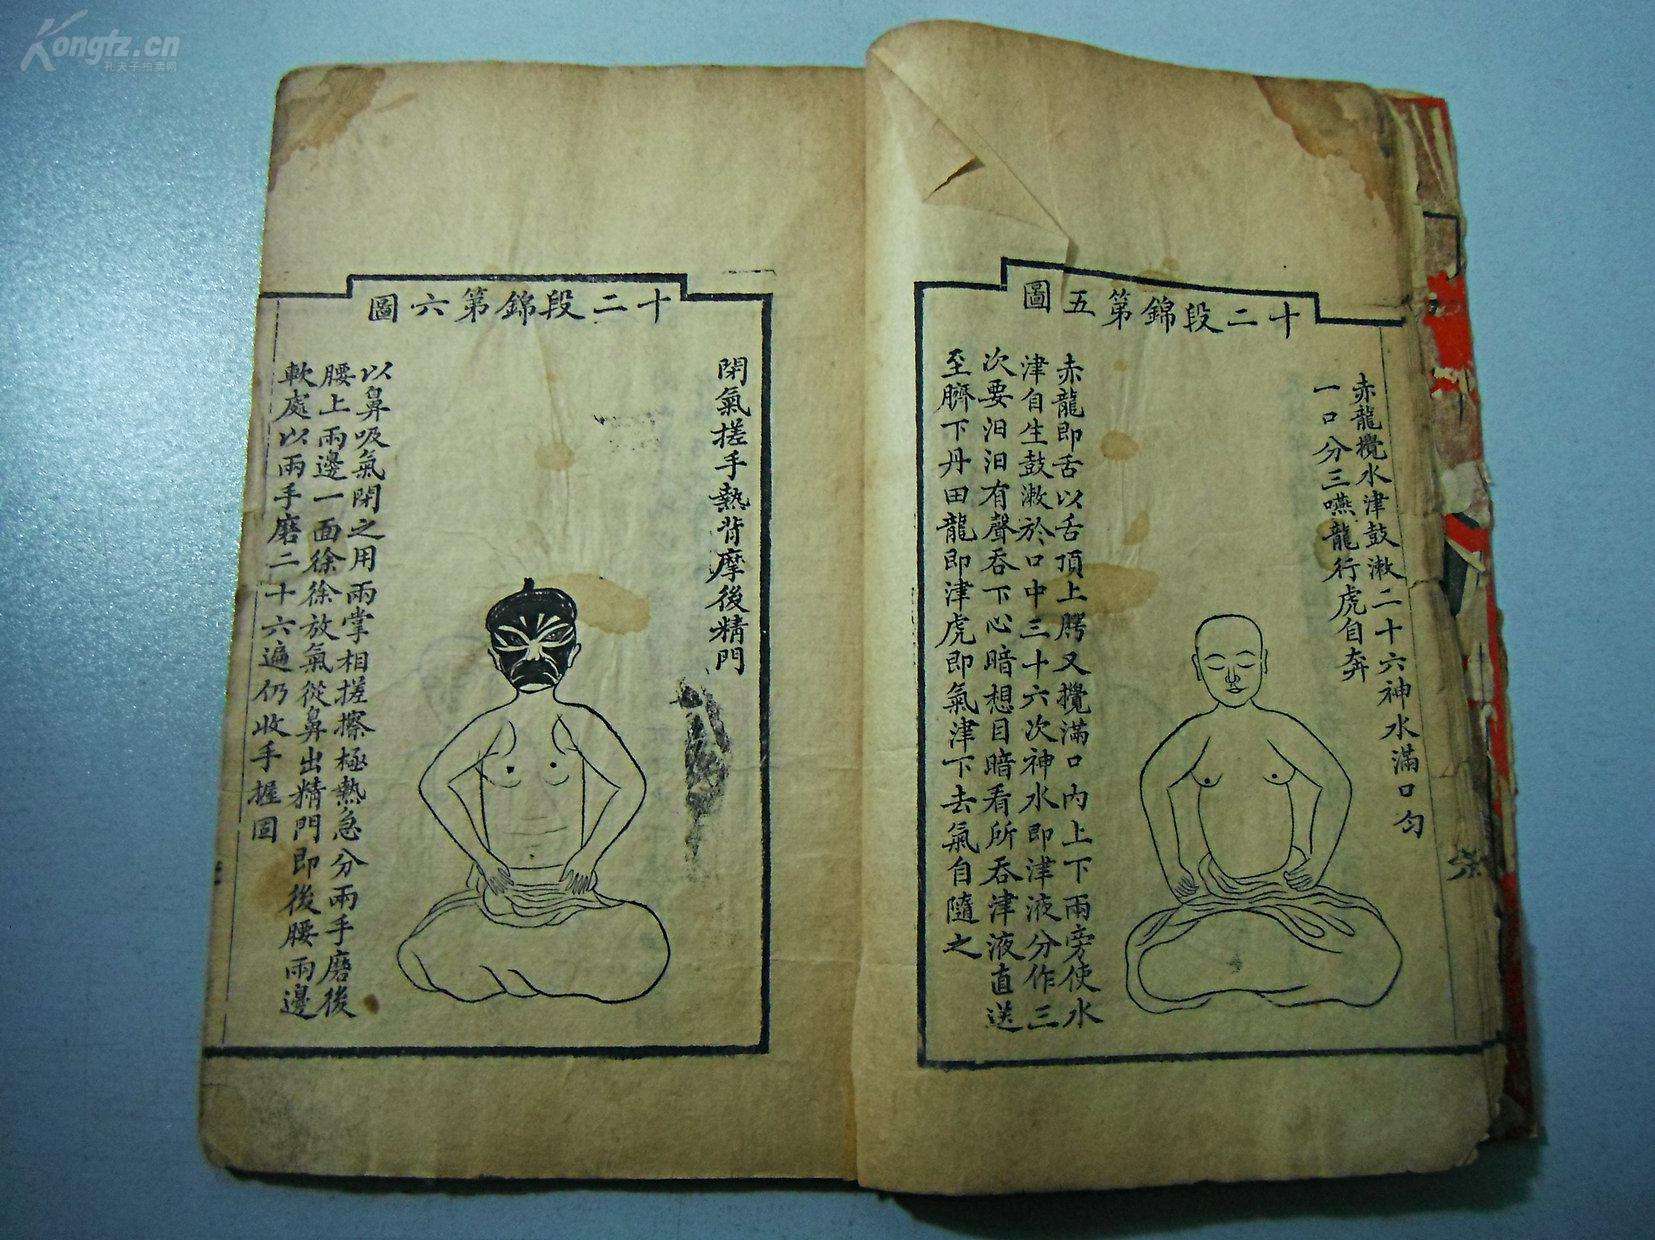 Kongfz.cn
孔夫子拍卖网
十二段錦第五圖
赤龍攪水津鼓漱二十六神水滿口勻
一口分三嚥龍行虎自奔
赤龍即舌以舌頂上腭又攪滿口內上下兩旁使水
津自生鼓漱於口中三十六次神水即津液分作三
次要汩汩有聲吞下心暗想目暗看所吞津液直送
至臍下丹田龍即津虎即氣津下去氣自隨之
十二段錦第六圖
閉氣搓手熱背摩後精門
以鼻吸氣閉之用兩掌相搓擦極熱急分兩手磨後
腰上兩邊一面徐徐放氣從鼻出精門即後腰兩邊
軟處以兩手磨二十六遍仍收手握固